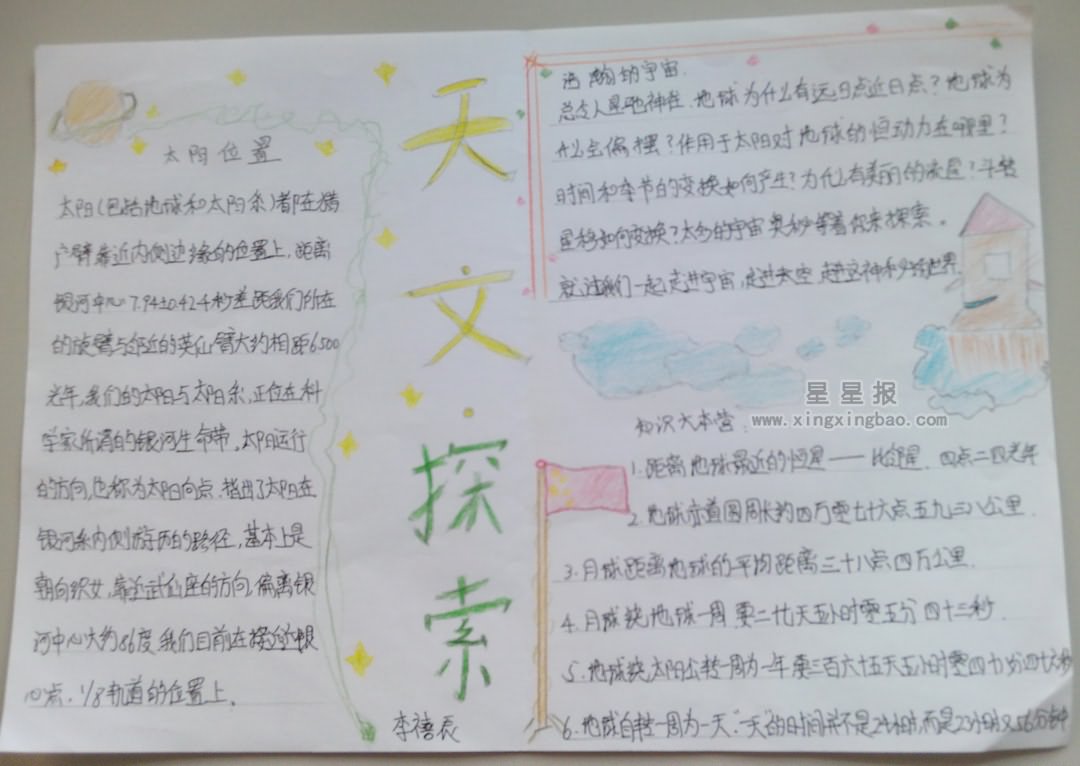 太阳位置
太阳(包括地球和太阳系)都在猎
户臂靠近内侧边缘的位置上,距离
银河中心7.94±0.42千秒差距我们所在
的旋臂与邻近的英仙臂大约相距6500
光年,我们的太阳与太阳系,正位在科
学家所谓的银河生命带,太阳运行
的方向,也称为太阳向点,指出了太阳在
银河系内侧游历的路径,基本上是
朝向织女,靠近武仙座的方向,偏离银
河中心大约86度,我们目前在接近银
心点,1/8轨道的位置上。
天文·探索
李禧辰
浩瀚的宇宙.
总令人显驰神往.地球为什么有远日点近日点?地球为
什么会偏摆?作用于太阳对地球的恒动力在哪里?
时间和季节的变换如何产生?为什么有美丽的流星?斗转
星移如何变换?太多的宇宙奥秘等着你来探索。
就让我们一起,走进宇宙,走进太空,走进这神秘的世界.
星星报
www.xingxingbao.com
知识大本营
1.距离地球最近的恒星——比邻星.四点二四光年
2.地球赤道圆周长约四万零七十六点五九三八公里.
3.月球距离地球的平均距离三十八点四万公里.
4.月球绕地球一周要二十九天五小时零五分四十三秒.
5.地球绕太阳公转一周为一年要三百六十五天五小时零四十分四十六秒
6.地球自转一周为一天."天"的时间并不是24小时,而是23小时又56分钟